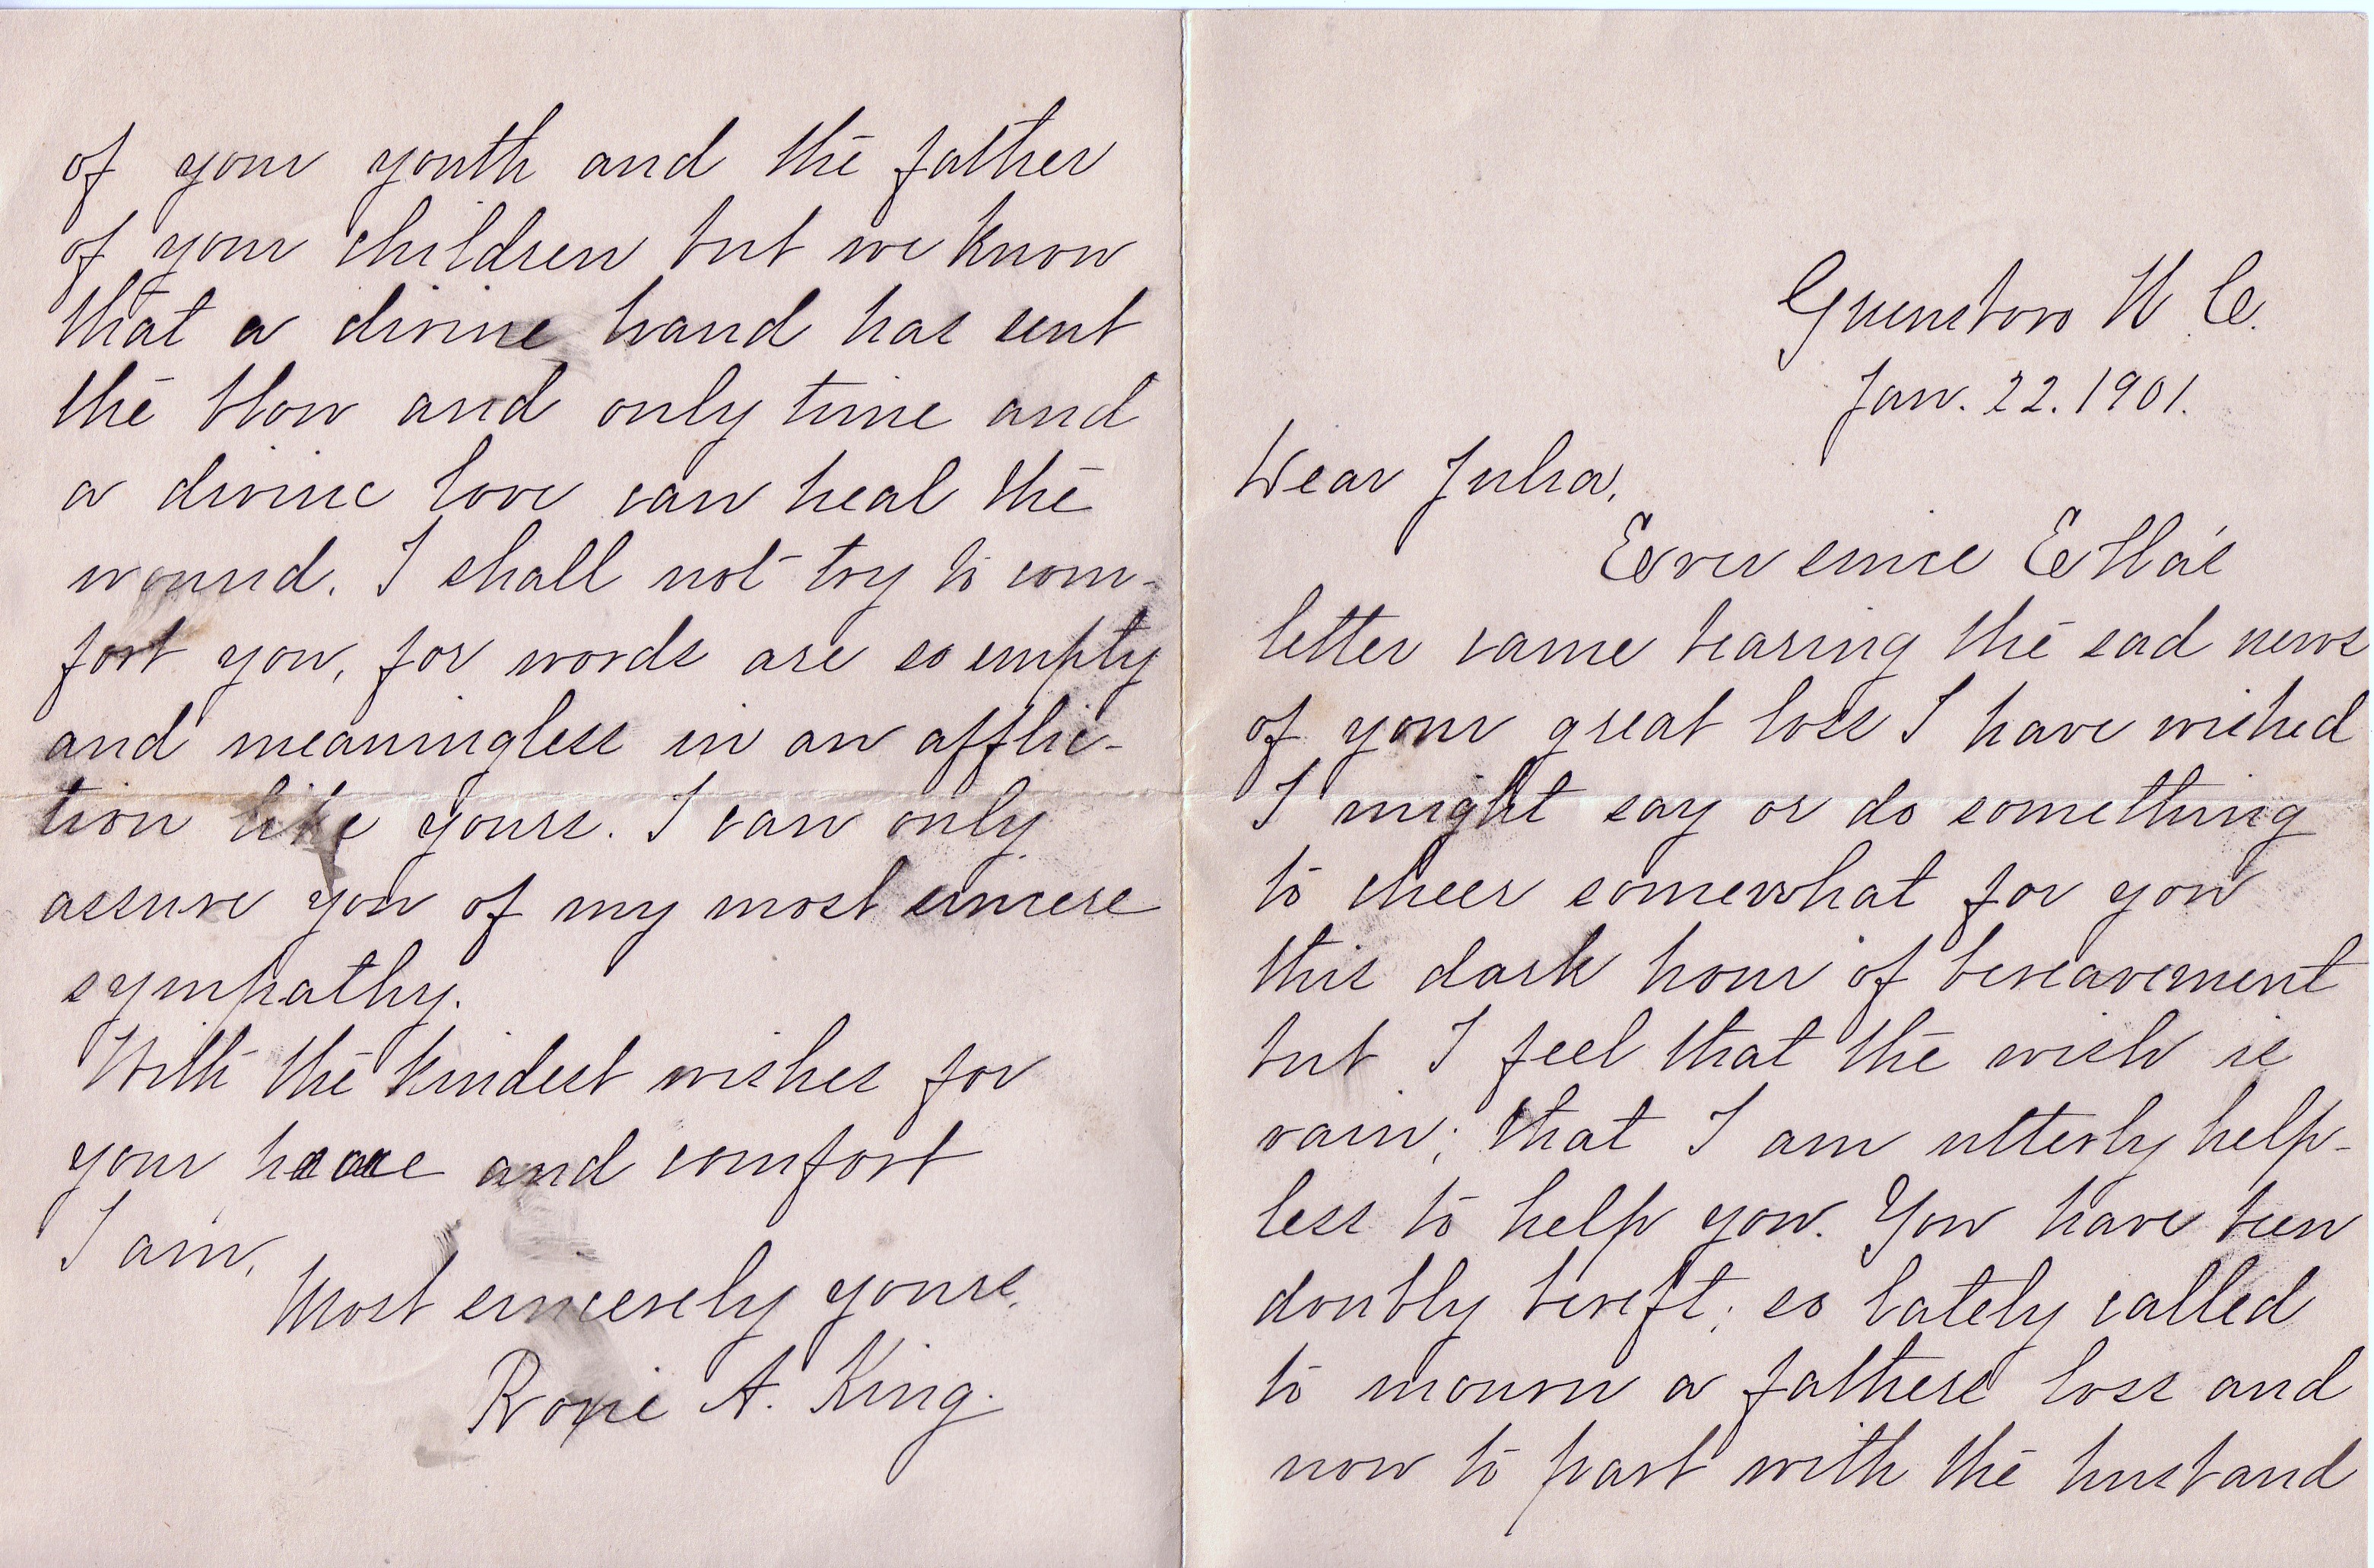 Greensboro N. C.
Jan. 22. 1901.
Dear Julia,
Ever since Etta's
letter came bearing the sad news
of your great loss I have wished
I might say or do something
to cheer somewhat for you
this dark hour of bereavement
but I feel that the wish is
vain; that I am utterly help-
less to help you. You have been
doubly bereft; so lately called
to mourn a fathers loss and
now to part with the husband
of your youth and the father
of your children but we know
that a divine hand has sent
the blow and only time and
a divine love can heal the
wound. I shall not try to com-
fort you, for words are so empty
and meaningless in an afflic-
tion like yours. I can only
assure you of my most sincere
sympathy.
With the kindest wishes for
your peace and comfort
I am,
Most sincerely yours,
Roxie A. King.